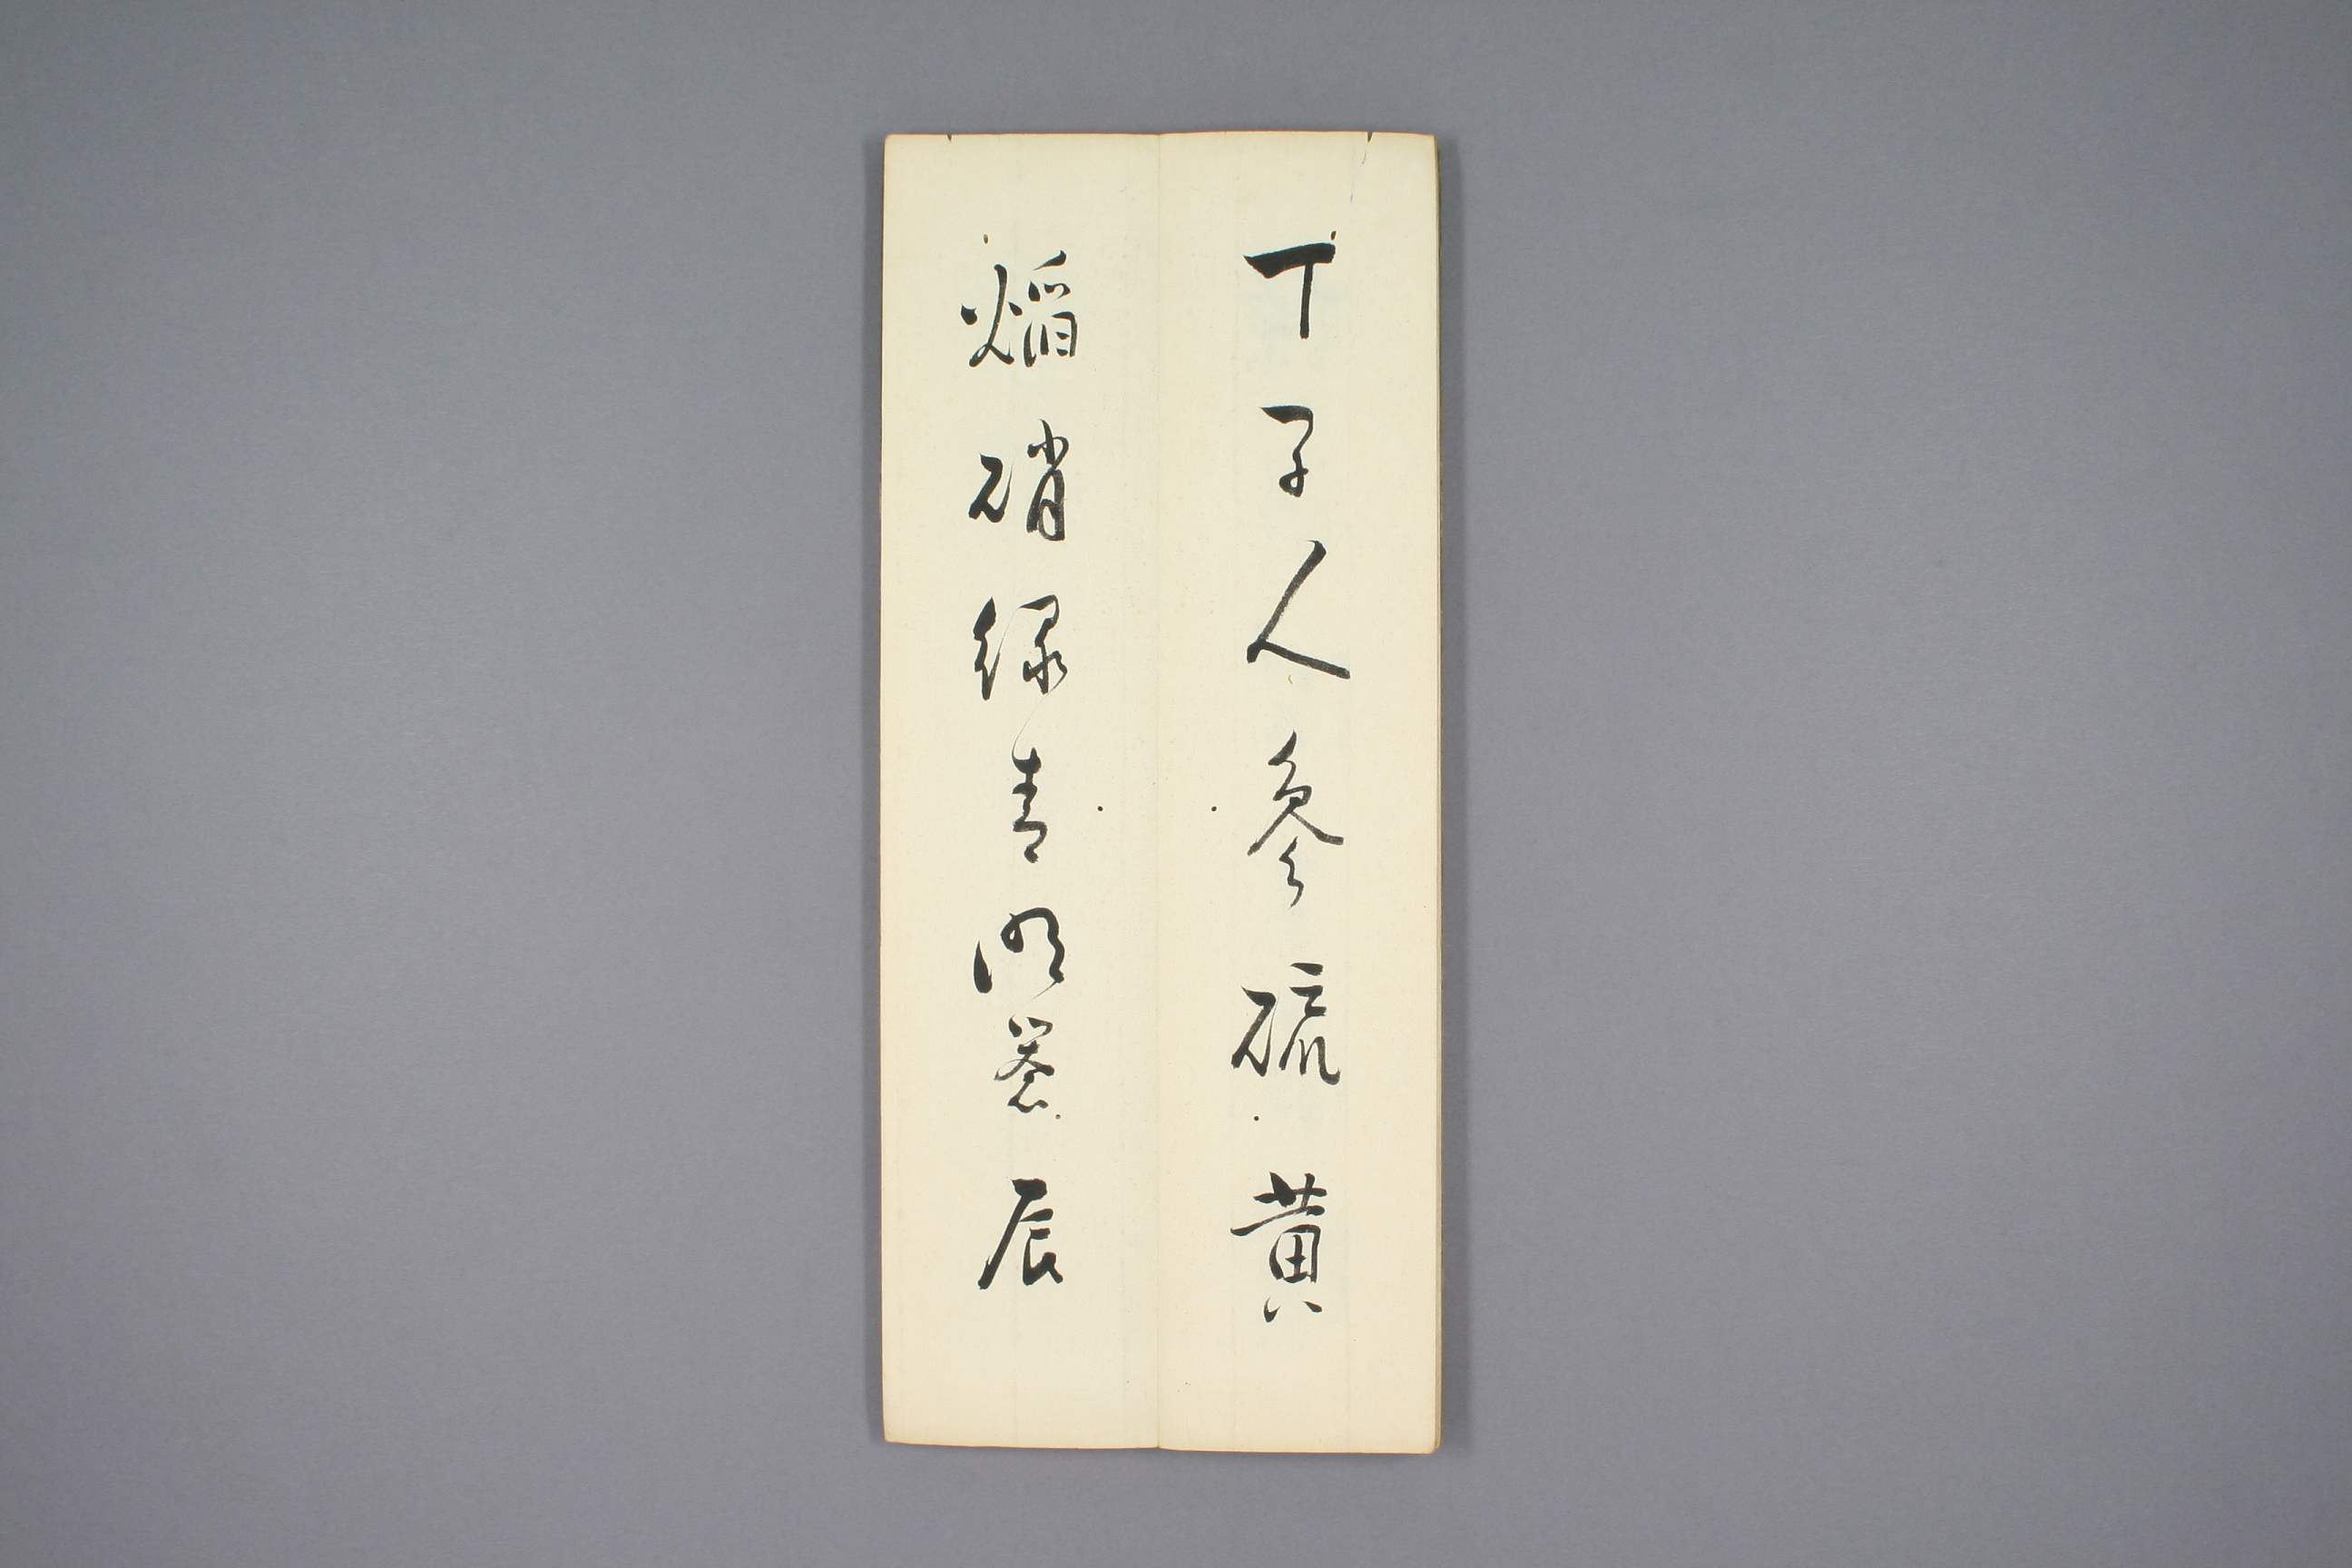 丁子人参硫黄
焔硝緑青明礬辰